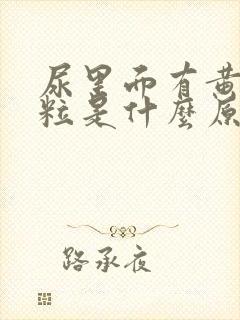 尿里面有黄
粒是什麼原
路承夜